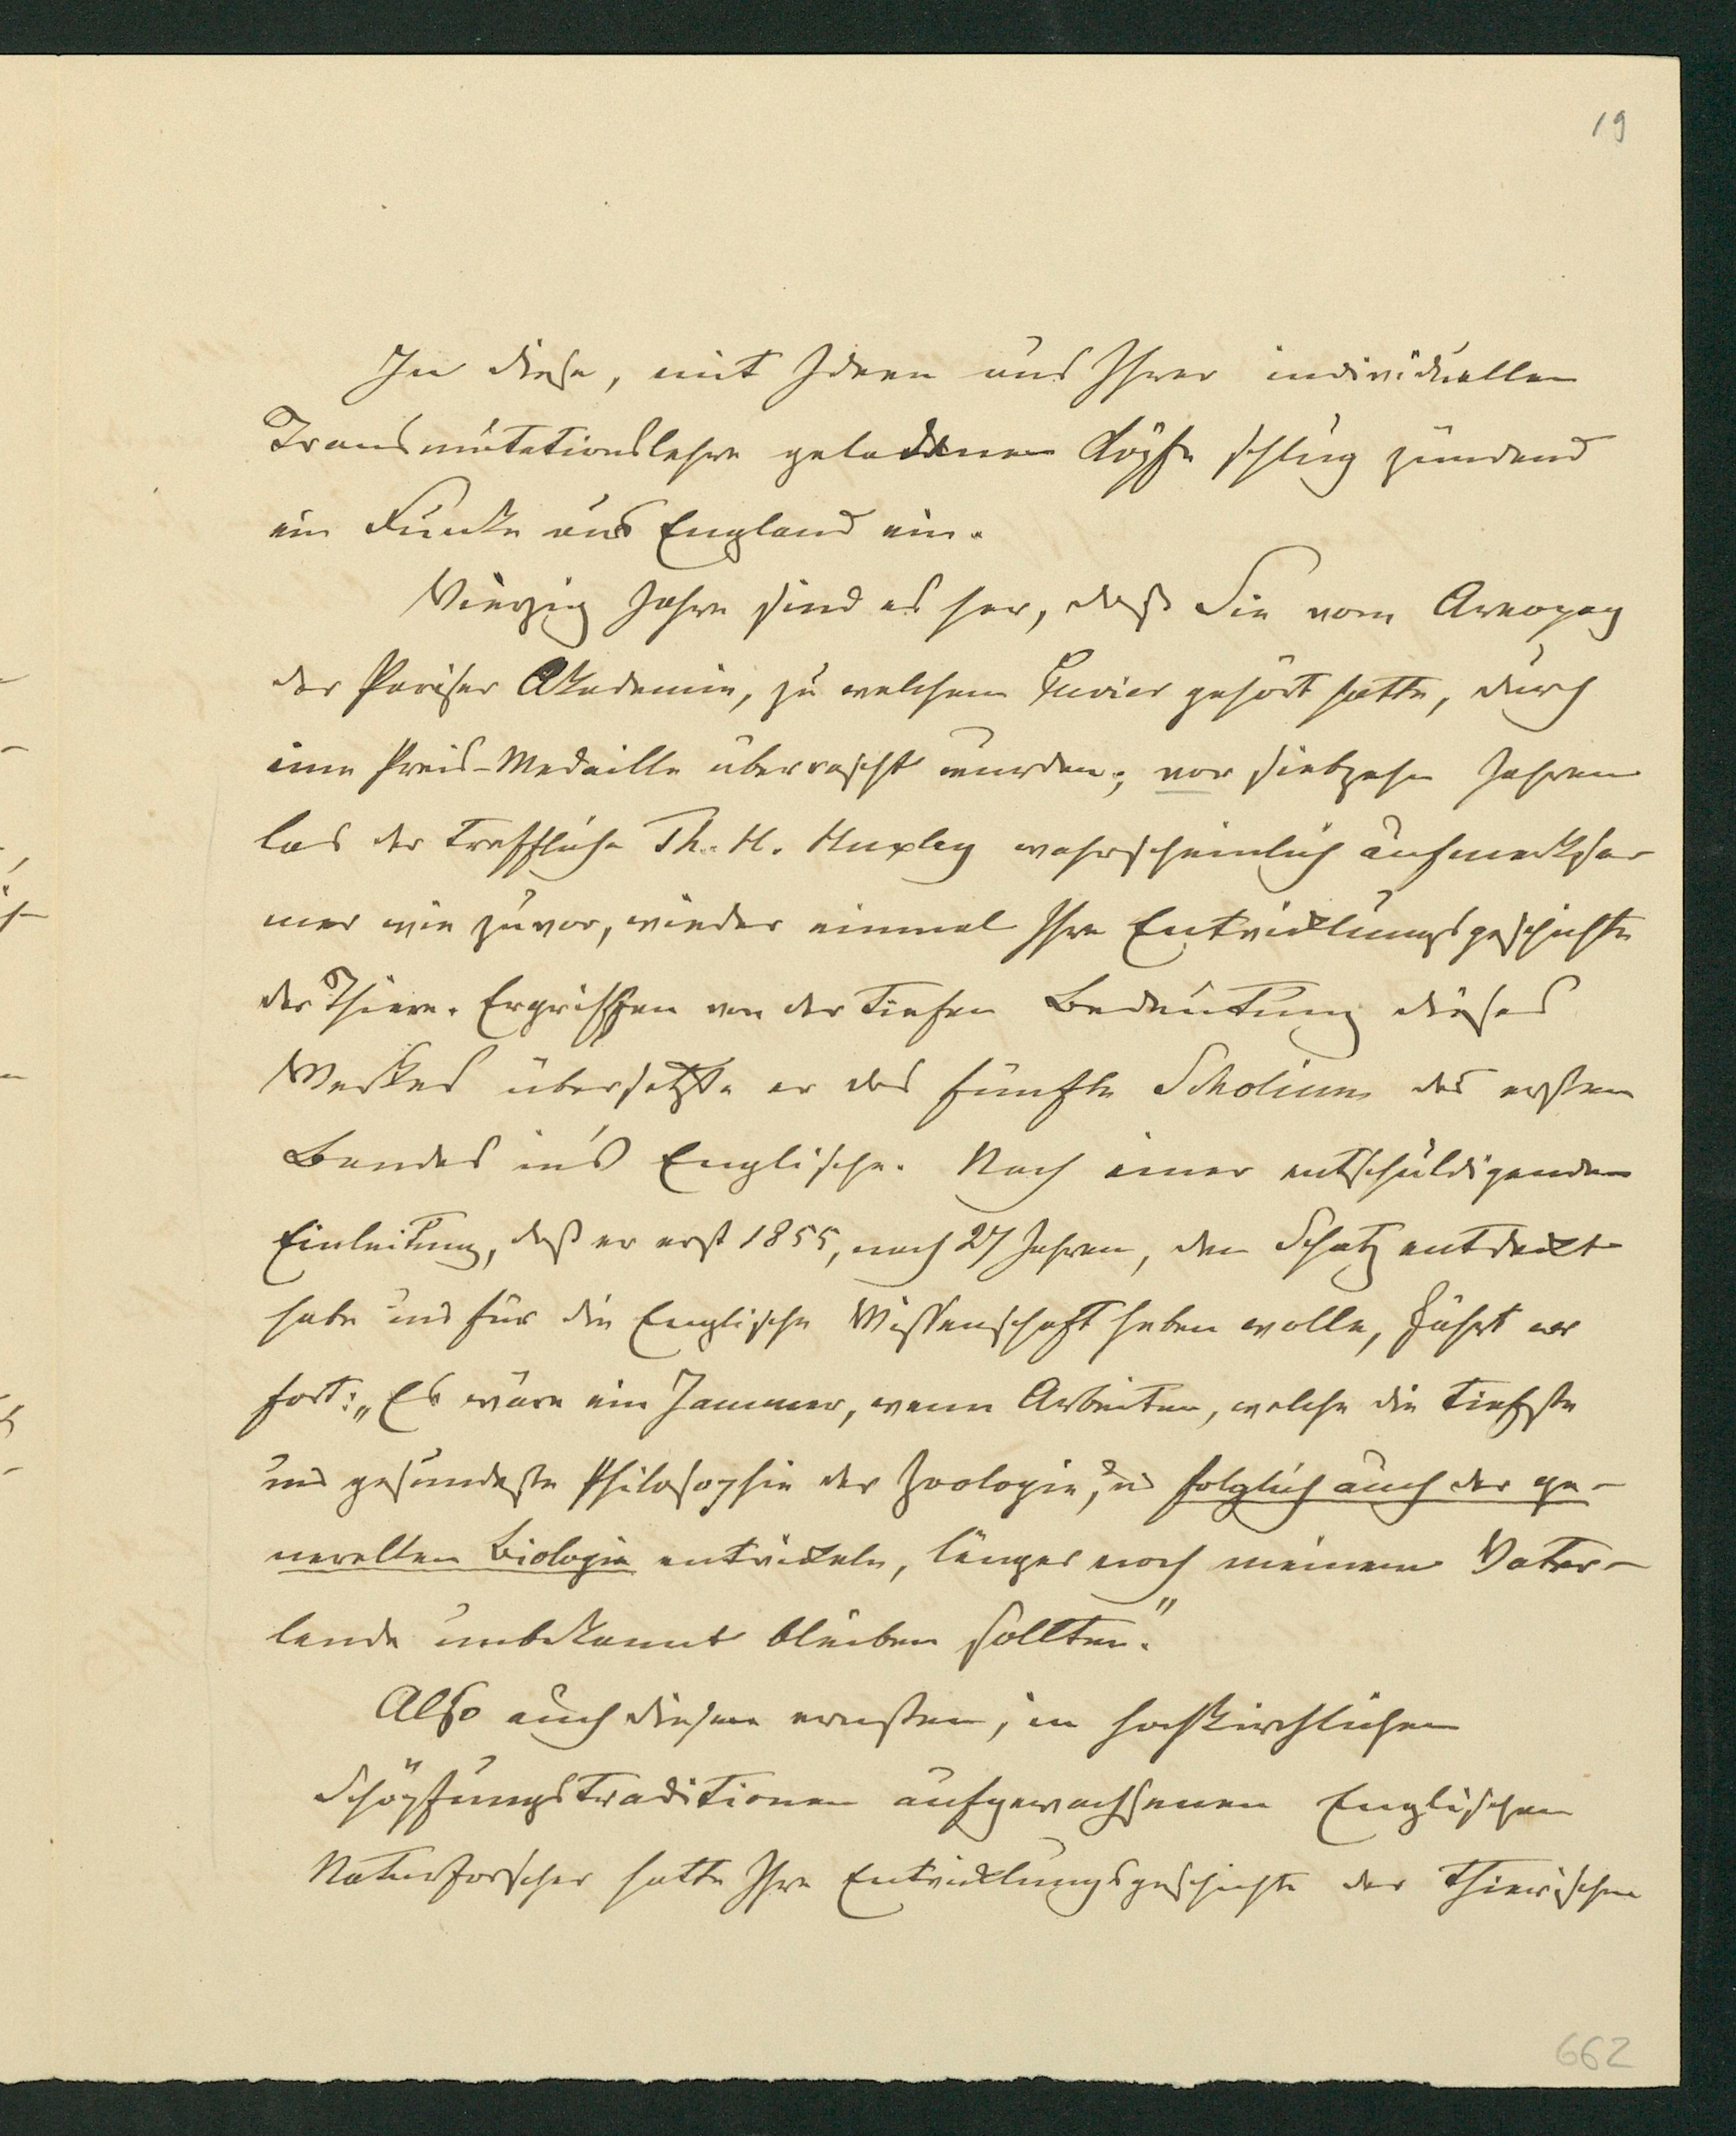 19
In diese, mit Ideen aus Ihrer individuellen
Transmutationslehre geladenen Köpfe schlug zündend
ein Funke aus England ein.
Vierzig Jahre sind es her, daß Sie vom Areopag
der Pariser Akademie, zu welchem Cuvier gehört hatte, durch
eine Preis-Medaille überrascht wurden; vor siebzehn Jahren
las der treffliche Th. H. Huxley wahrscheinlich aufmerksa-
mer wie zuvor, wieder einmal Ihre Entwicklungsgeschichte
der Thiere. Ergriffen von der tiefen Bedeutung dieses
Werkes übersetzte er das fünfte Scholium des ersten
Bandes in's Englische. Nach einer entschuldigenden
Einleitung, daß er erst 1855, nach 27 Jahren, den Schatz entdeckt
habe und für die Englische Wissenschaft heben wolle, fährt er
fort: „Es wäre ein Jammer, wenn Arbeiten, welche die tiefste
und gesundeste Philosophie der Zoologie, und folglich auch der ge-
nerellen Biologie entwickeln, länger noch meinem Vater-
lande unbekannt bleiben sollten."
Also auch diesem ernsten, in hochkirchlichen
Schöpfungstraditionen aufgewachsenen Englischen
Naturforscher hatte Ihre Entwicklungsgeschichte der thierischen
662